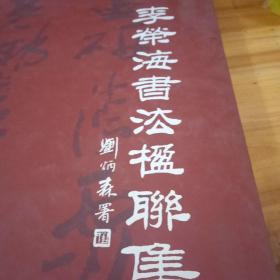 李榮海書法楹聯集
劉炳森署